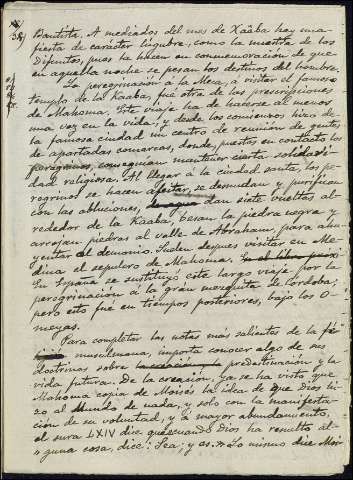 38)
Bautista. A mediados del mes de Xaâba hay una
fiesta de carácter lúgubre, como la nuestra de los
Difuntos, pues la hacen en conmemoración de que
en aquella noche se pesan los destinos del hombre.
La peregrinación á la Meca, á visitar el famoso
templo de la kaaba, fué otra de las prescripciones
de Mahoma. Este viaje ha de hacerse al menos
una vez en la vida; y desde los comienzos hizo de
la famosa ciudad un centro de reunion de gentes
de apartadas comarcas, donde, puestos en contacto los
peregrinos, conseguian mantener cierta solidari-
dad religiosa. Al llegar á la ciudad santa, los pe-
regrinos se hacen afeitar, se desnudan y purifican
con las abluciones, dan siete vueltas al-
rededor de la Kaaba, besan la piedra negra y
arrojan piedras al valle de Abraham, para ahu-
yentar al demonio. Suelen despues visitar en Me-
dina el sepulcro de Mahoma.
En España se sustituyó este largo viaje, por la
peregrinación á la gran mezquita de Cordoba;
pero esto fué en tiempos posteriores, bajo los O-
meyas.
Para completar las notas más salientes de la fé
musulmana, importa conocer algo de sus
doctrinas sobre predestinación y la
vida futura. De la creación, ya se ha visto que
Mahoma copia de Moisés la idea de que Dios hi-
zo al Mundo de nada, y solo con la manifesta-
cion de su voluntad, y á mayor abundamiento,
el sura LXIV dice que cuando Dios ha resuelto al-
guna cosa, dice: Sea; y es. Lo mismo dice Moi-